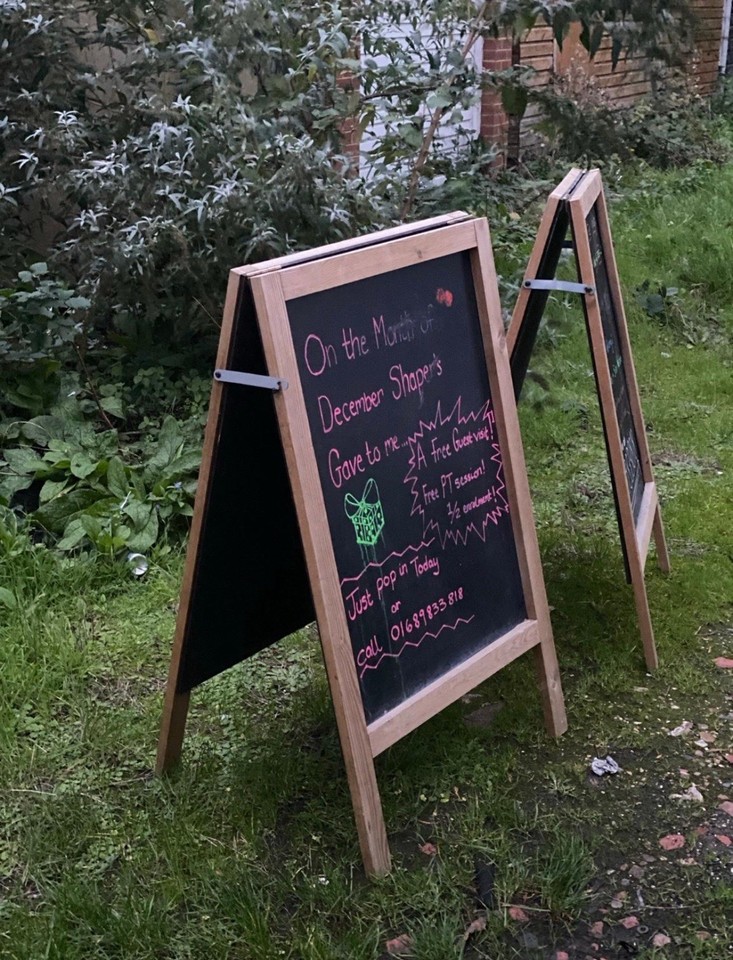 On the Month of
December Shaper's
Gave to me...
A free Guest visit!
Free PT session!
1/2 enrolment!
Just pop in Today
or
call 01689833818